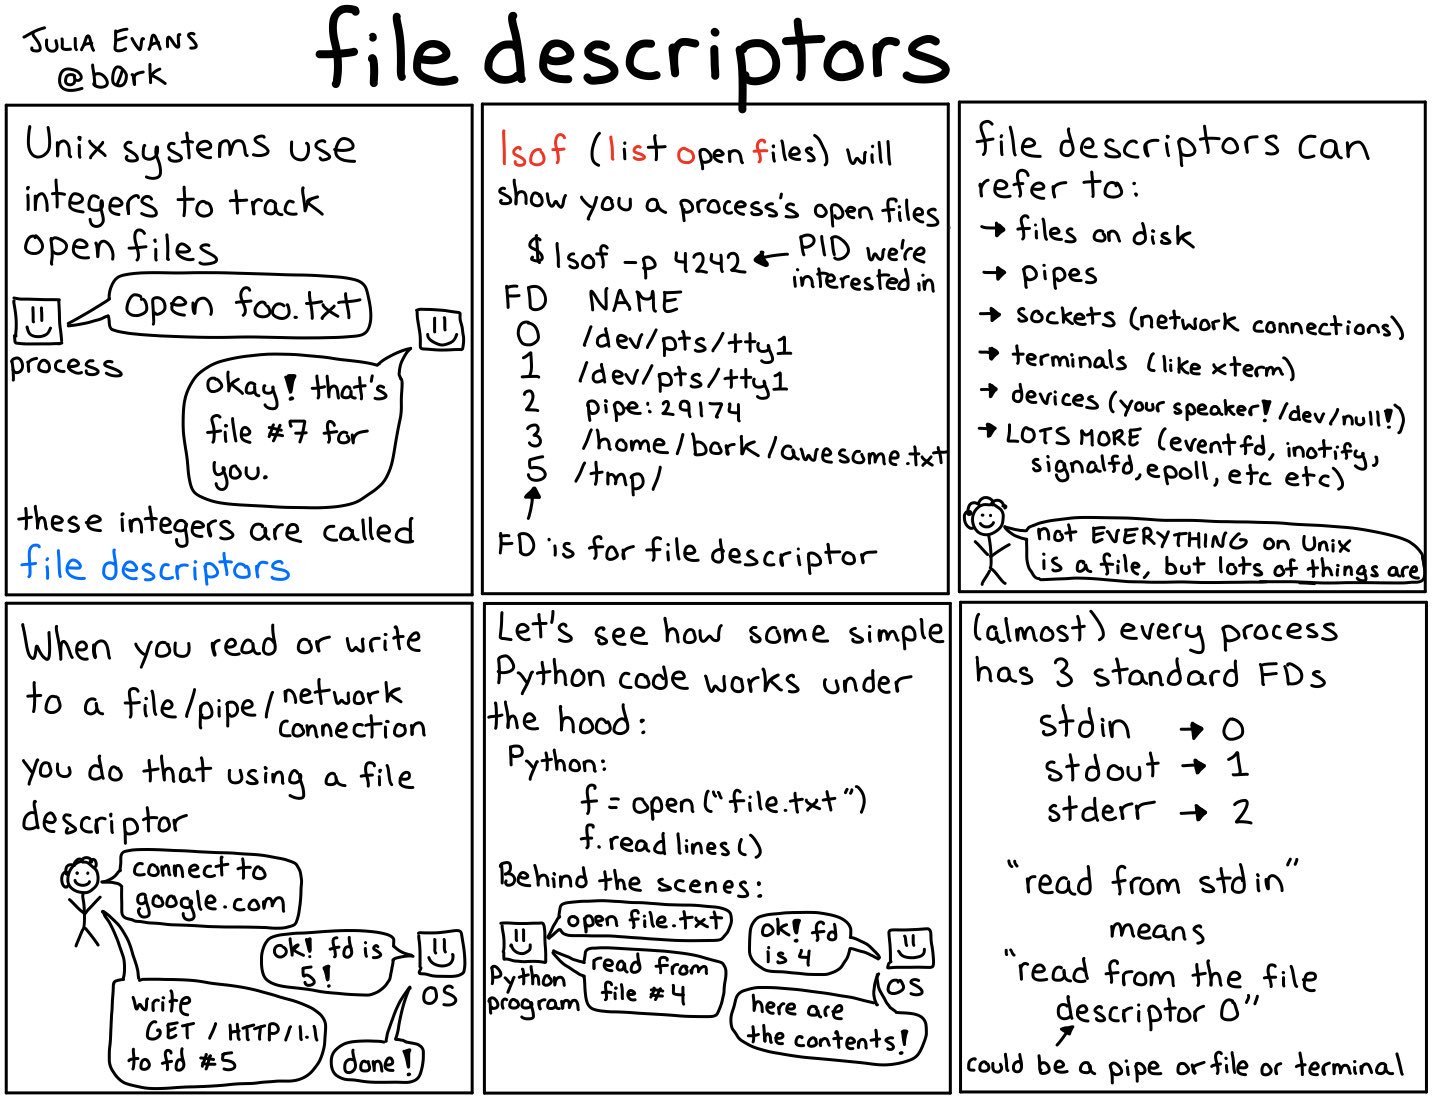 JULIA EVANS
@b0rk
file descriptors
Unix systems use
integers to track
open files
open foo.txt
process
okay! that's
file #7 for
you.
these integers are called
file descriptors
lsof (list open files) will
show you a process's open files
$ lsof -p 4242 ← PID we're
interested in
FD NAME
0 /dev/pts/tty1
1 /dev/pts/tty1
2 pipe:29174
3 /home/bork/awesome.txt
5 /tmp/
↑
FD is for file descriptor
file descriptors can
refer to:
→ files on disk
→ pipes
→ sockets (network connections)
→ terminals (like xterm)
→ devices (your speaker! /dev/null!)
→ LOTS MORE (eventfd, inotify,
signalfd, epoll, etc etc)
not EVERYTHING on Unix
is a file, but lots of things are
When you read or write
to a file/pipe/network
connection
you do that using a file
descriptor
connect to
google.com
ok! fd is
5!
OS
write
GET / HTTP/1.1
to fd #5
done!
Let's see how some simple
Python code works under
the hood:
Python:
f = open("file.txt")
f.readlines()
Behind the scenes:
open file.txt
ok! fd
is 4
Python
program
OS
read from
file #4
here are
the contents!
(almost) every process
has 3 standard FDs
stdin → 0
stdout → 1
stderr → 2
"read from stdin"
means
"read from the file
descriptor 0"
could be a pipe or file or terminal